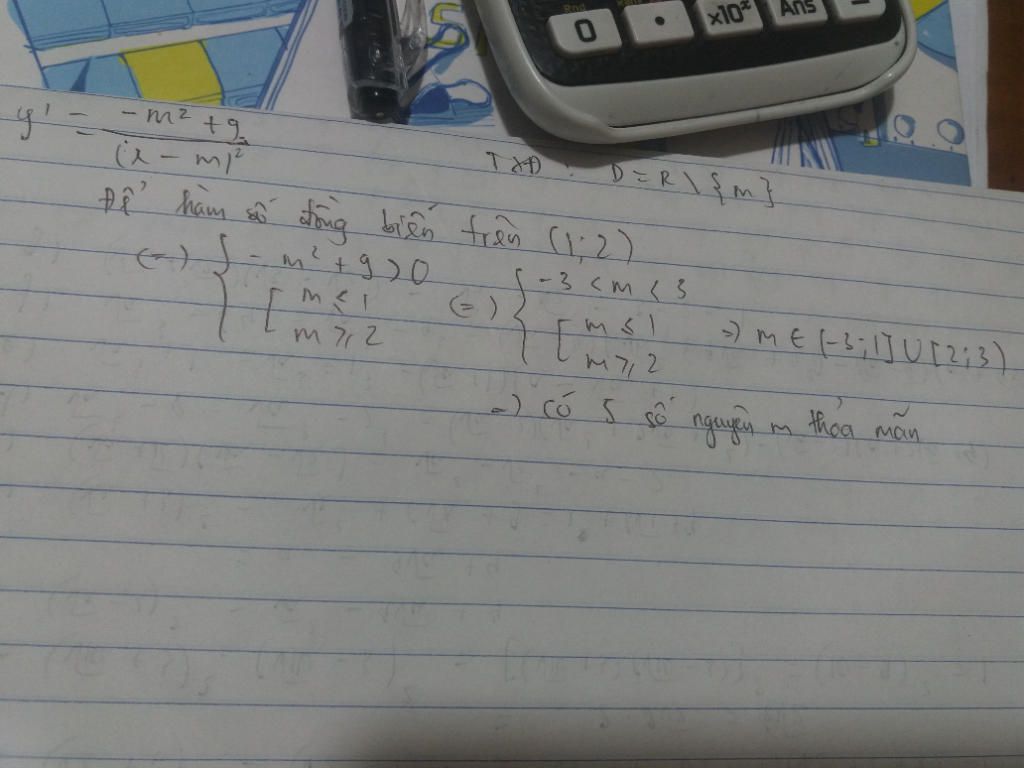 0 • ×10ˣ Ans
y' = \frac{-m² + 9}{(x - m)²}
TXĐ : D = R \ {m}
Để hàm số đồng biến trên (1; 2)
(=) { -m² + 9 > 0 [ m ≤ 1 m ≥ 2 (=) { -3 < m < 3 [ m ≤ 1 m ≥ 2 => m ∈ (-3; 1] ∪ [2; 3)
=> có 5 số nguyên m thỏa mãn